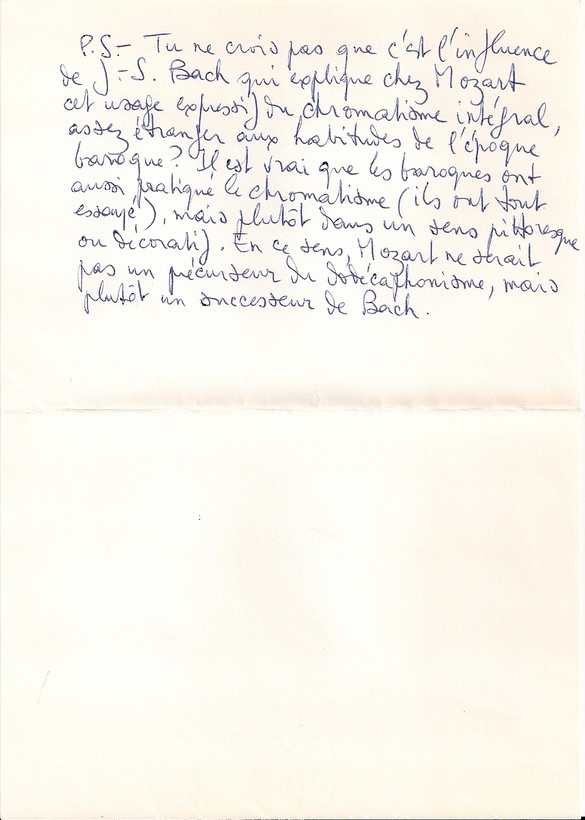 P.S.- Tu ne crois pas que c'est l'influence
de J.-S. Bach qui explique chez Mozart
cet usage expressif du chromatisme intégral,
assez étranger aux habitudes de l'époque
baroque? Il est vrai que les baroques ont
aussi pratiqué le chromatisme (ils ont tout
essayé!), mais plutôt dans un sens pittoresque
ou décoratif. En ce sens, Mozart ne serait
pas un précurseur du dodécaphonisme, mais
plutôt un successeur de Bach.